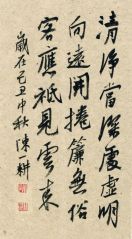 清淨當深處虛明
向遠開捲簾無俗
客應祗見雲來
歲在己丑中秋陳一耕